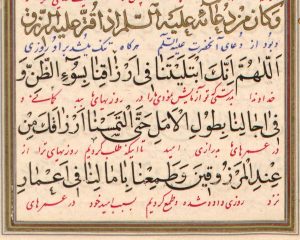 وَكَانَ مِنْ دُعَائِهِ عَلَيْهِ السَّلَامُ اِذَا قُتِّرَ عَلَيْهِ الرِّزْقُ
وبود از دعای آنحضرت علیه السلام هرگاه که تنگ شد بر او روزی
اَللّٰهُمَّ اِنَّكَ ابْتَلَيْتَنَا فِى اَرْزَاقِنَا بِسُوءِ الظَّنِّ وَ
خداوندا بدرستی که تو آزمایش نمودی ما را در روزیهای ما ببد گمانی و
فِى اٰجَالِنَا بِطُولِ الْاَمَلِ حَتَّى الْتَمَسْنَا اَرْزَاقَكَ مِنْ
در عمرهای ما بدرازی امید تا اینکه طلب کردیم روزیهای ترا از
عِنْدِ الْمَرْزُوقِينَ وَطَمِعْنَا بِاٰمَالِنَا فِى اَعْمَارِ
نزد روزی داده شده و طمع کردیم بسبب امید خود در عمرهای